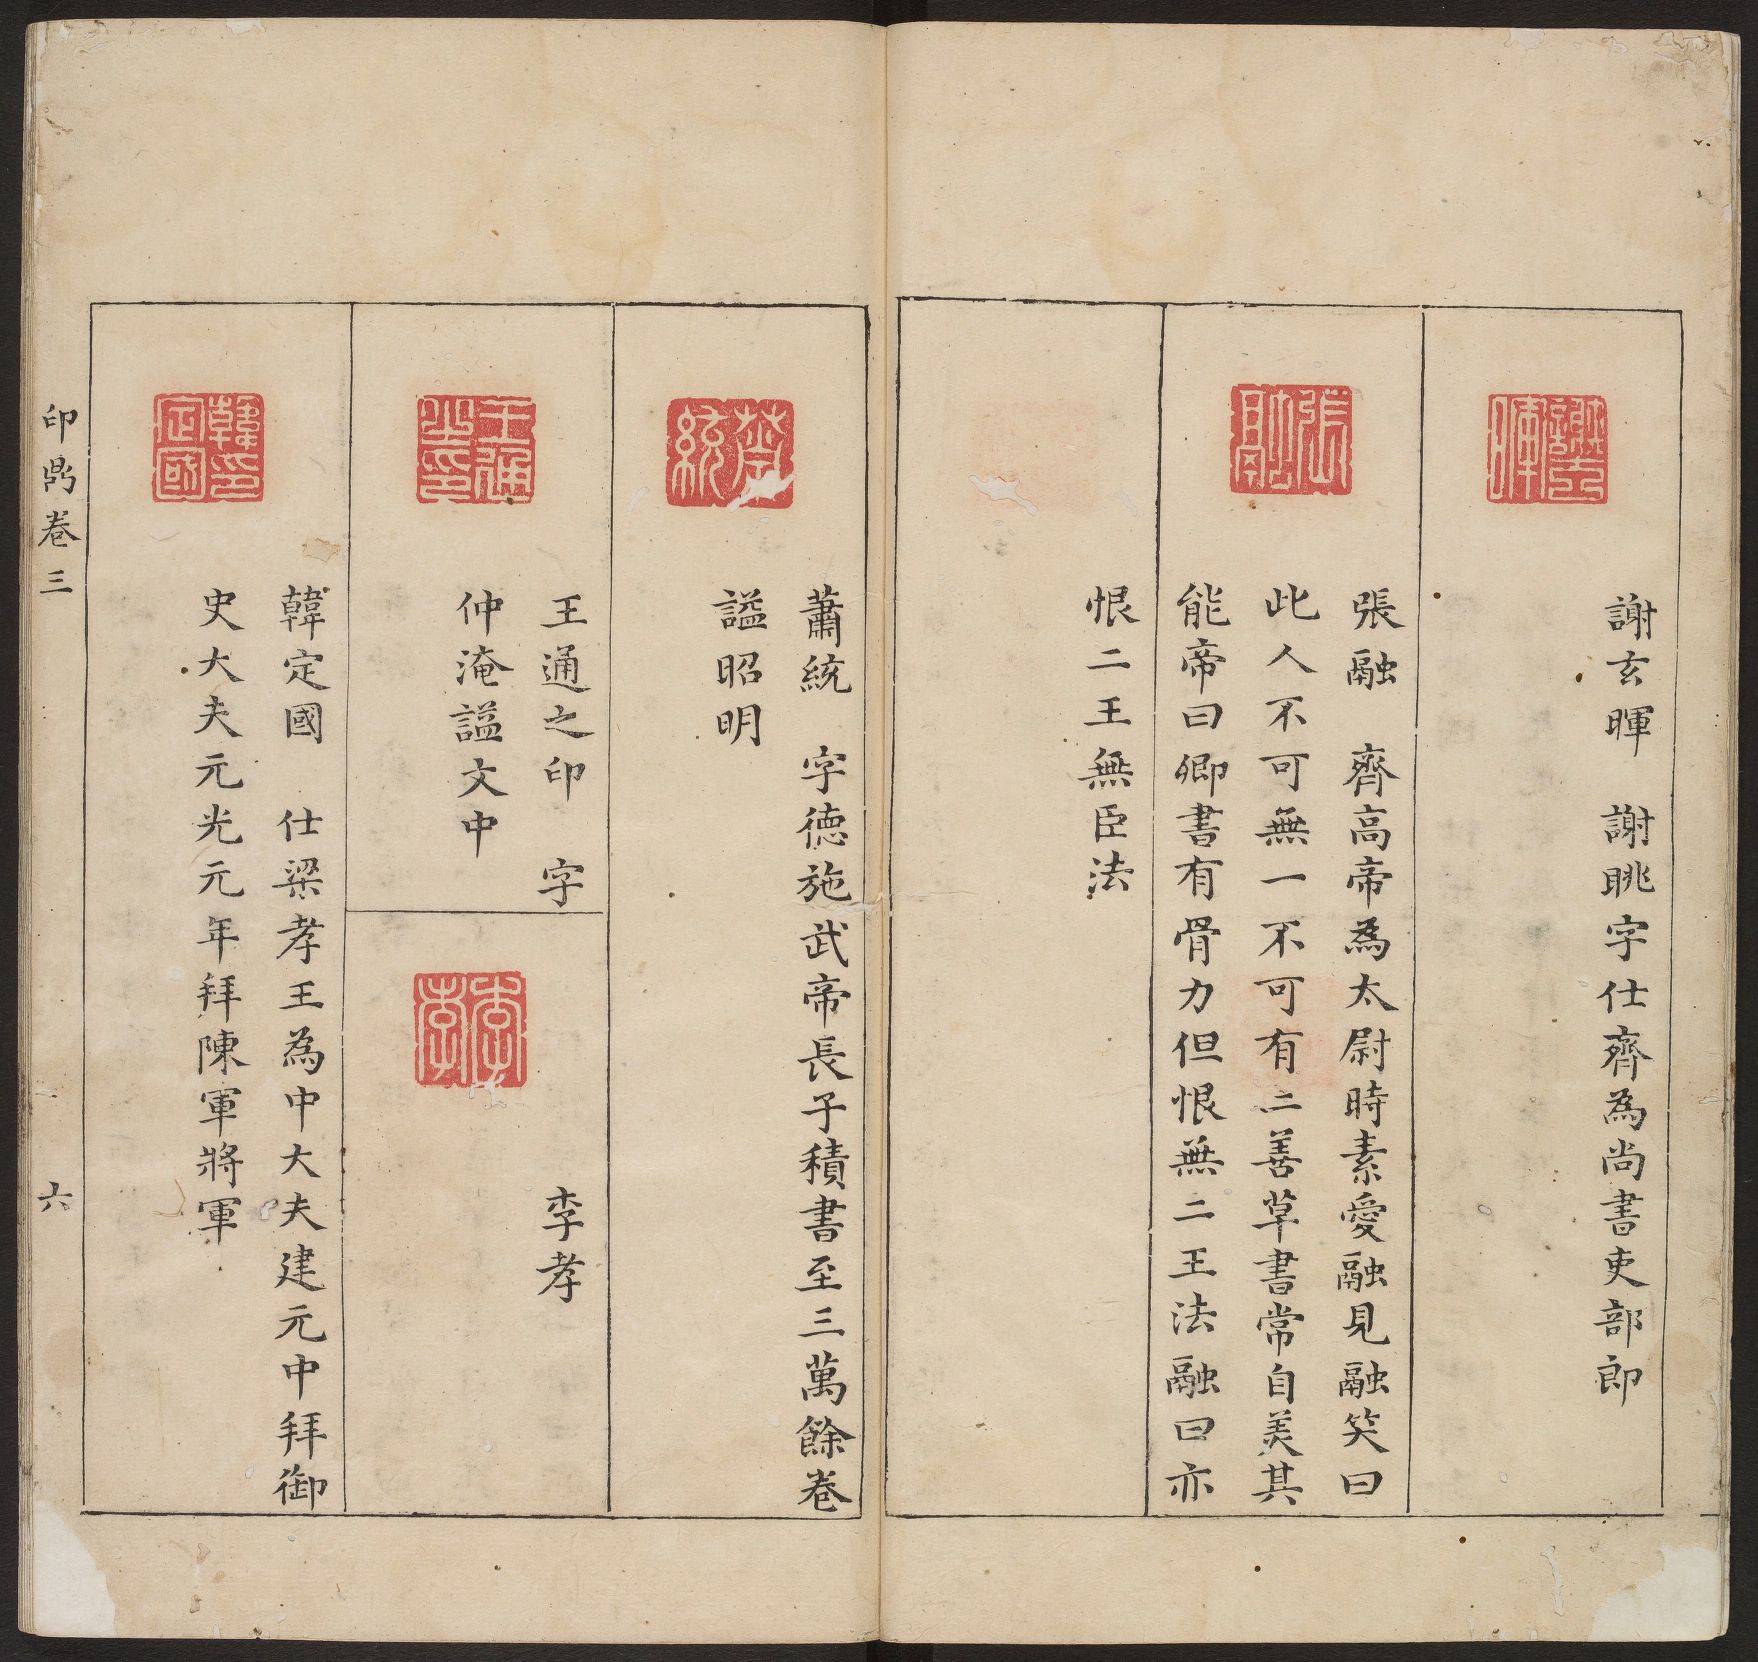 謝玄暉　謝眺字仕齊為尚書吏部郎
張融　齊高帝為太尉時素愛融見融笑曰
此人不可無一不可有二善草書常自美其
能帝曰卿書有骨力但恨無二王法融曰亦
恨二王無臣法
蕭統
蕭統　字德施武帝長子積書至三萬餘卷
謚昭明
王通之印
王通之印　字
仲淹謚文中
李孝
韓定國　仕梁孝王為中大夫建元中拜御
史大夫元光元年拜陳軍將軍
印鼎卷三
六